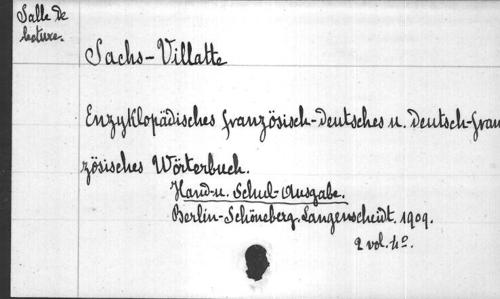 Salle de
lecture.
Sachs-Villatte
Enzyklopädisches französisch-deutsches u. deutsch-fran
zösisches Wörterbuch.
Hand-u. Schul-Ausgabe.
Berlin-Schöneberg. Langenscheidt. 1909.
2 vol. 4°.